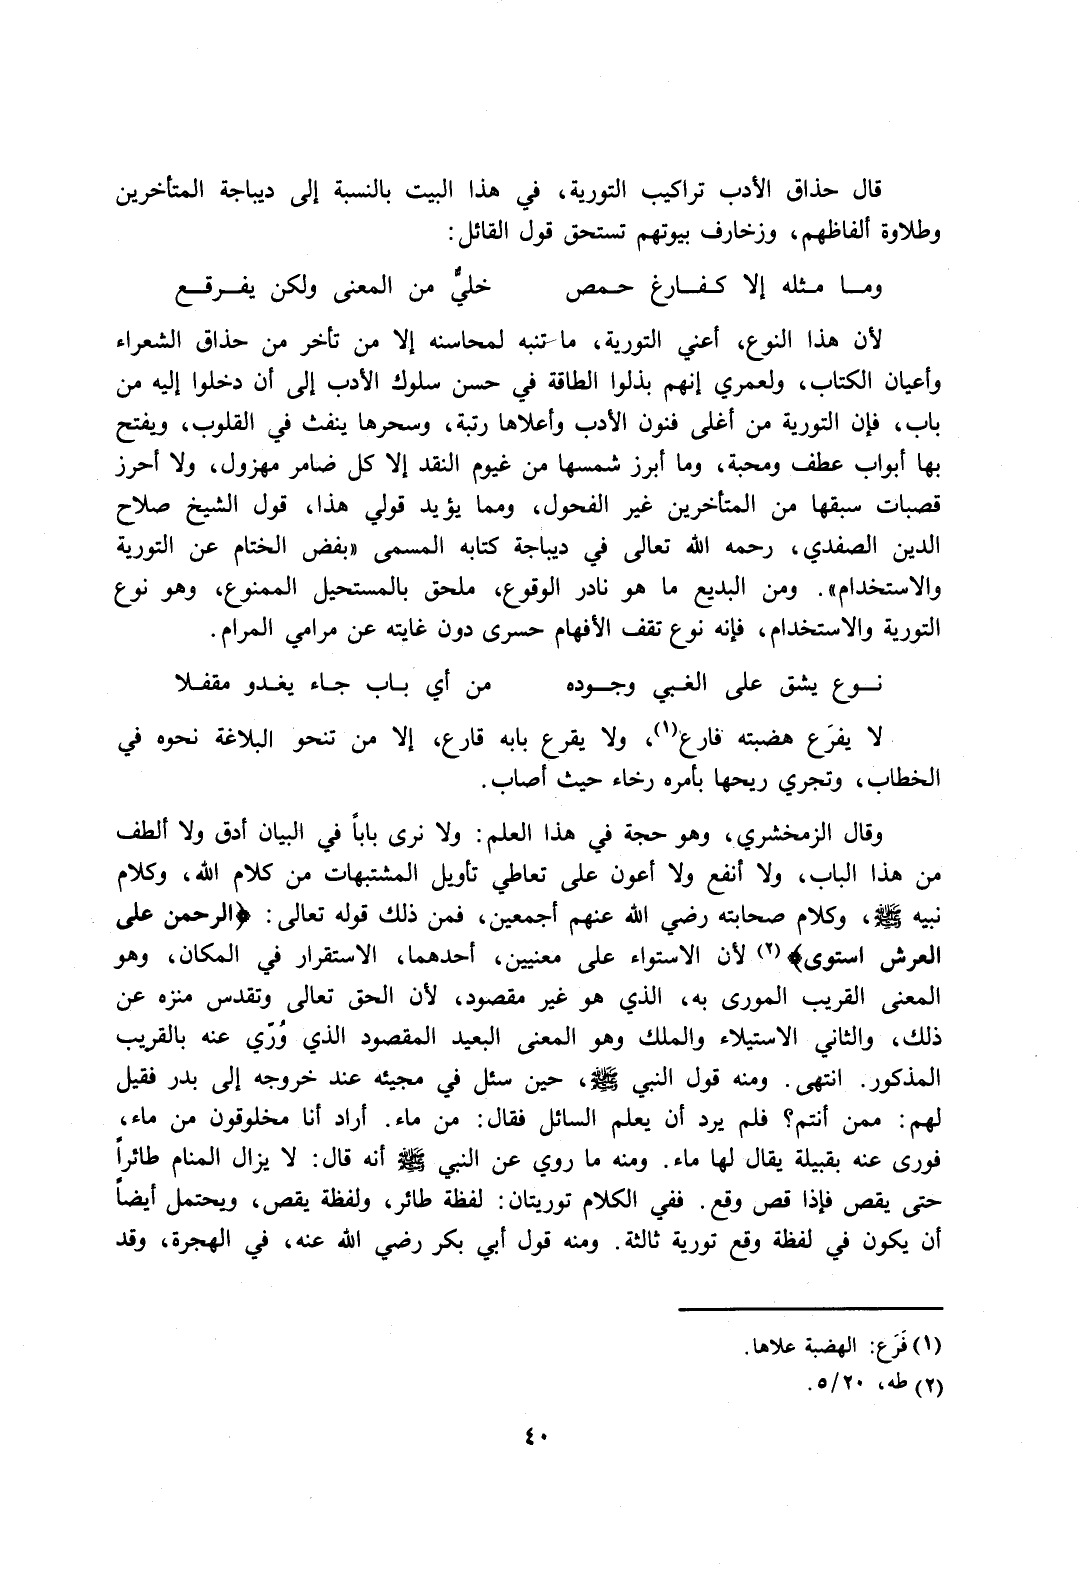 قال حذاق الأدب تراكيب التورية، في هذا البيت بالنسبة إلى ديباجة المتأخرين
وطلاوة ألفاظهم، وزخارف بيوتهم تستحق قول القائل:
ومـا مـثله إلا كـفـارغ حـمص خليٌّ من المعنى ولكن يفـرقـع
لأن هذا النوع، أعني التورية، ما تنبه لمحاسنه إلا من تأخر من حذاق الشعراء
وأعيان الكتاب، ولعمري إنهم بذلوا الطاقة في حسن سلوك الأدب إلى أن دخلوا إليه من
باب، فإن التورية من أغلى فنون الأدب وأعلاها رتبة، وسحرها ينفث في القلوب، ويفتح
بها أبواب عطف ومحبة، وما أبرز شمسها من غيوم النقد إلا كل ضامر مهزول، ولا أحرز
قصبات سبقها من المتأخرين غير الفحول، ومما يؤيد قولي هذا، قول الشيخ صلاح
الدين الصفدي، رحمه الله تعالى في ديباجة كتابه المسمى «بفض الختام عن التورية
والاستخدام». ومن البديع ما هو نادر الوقوع، ملحق بالمستحيل الممنوع، وهو نوع
التورية والاستخدام، فإنه نوع تقف الأفهام حسرى دون غايته عن مرامي المرام.
نـوع يشق على الغـبي وجـوده من أي بـاب جـاء يغـدو مقفـلا
لا يفرَع هضبته فارع(١)، ولا يقرع بابه قارع، إلا من تنحو البلاغة نحوه في
الخطاب، وتجري ريحها بأمره رخاء حيث أصاب.
وقال الزمخشري، وهو حجة في هذا العلم: ولا نرى باباً في البيان أدق ولا ألطف
من هذا الباب، ولا أنفع ولا أعون على تعاطي تأويل المشتبهات من كلام الله، وكلام
نبيه ﷺ، وكلام صحابته رضي الله عنهم أجمعين، فمن ذلك قوله تعالى: ﴿الرحمن على
العرش استوى﴾(٢) لأن الاستواء على معنيين، أحدهما، الاستقرار في المكان، وهو
المعنى القريب المورى به، الذي هو غير مقصود، لأن الحق تعالى وتقدس منزه عن
ذلك، والثاني الاستيلاء والملك وهو المعنى البعيد المقصود الذي وُرّي عنه بالقريب
المذكور. انتهى. ومنه قول النبي ﷺ، حين سئل في مجيئه عند خروجه إلى بدر فقيل
لهم: ممن أنتم؟ فلم يرد أن يعلم السائل فقال: من ماء. أراد أنا مخلوقون من ماء،
فورى عنه بقبيلة يقال لها ماء. ومنه ما روي عن النبي ﷺ أنه قال: لا يزال المنام طائراً
حتى يقص فإذا قص وقع. ففي الكلام توريتان: لفظة طائر، ولفظة يقص، ويحتمل أيضاً
أن يكون في لفظة وقع تورية ثالثة. ومنه قول أبي بكر رضي الله عنه، في الهجرة، وقد
(١) فَرَع: الهضبة علاها.
(٢) طه، ٥/٢٠.
٤٠